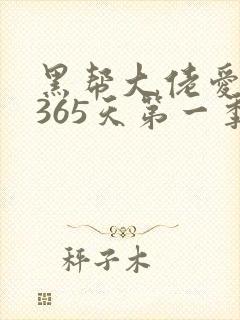 黑帮大佬爱
365天第一季
秤子木